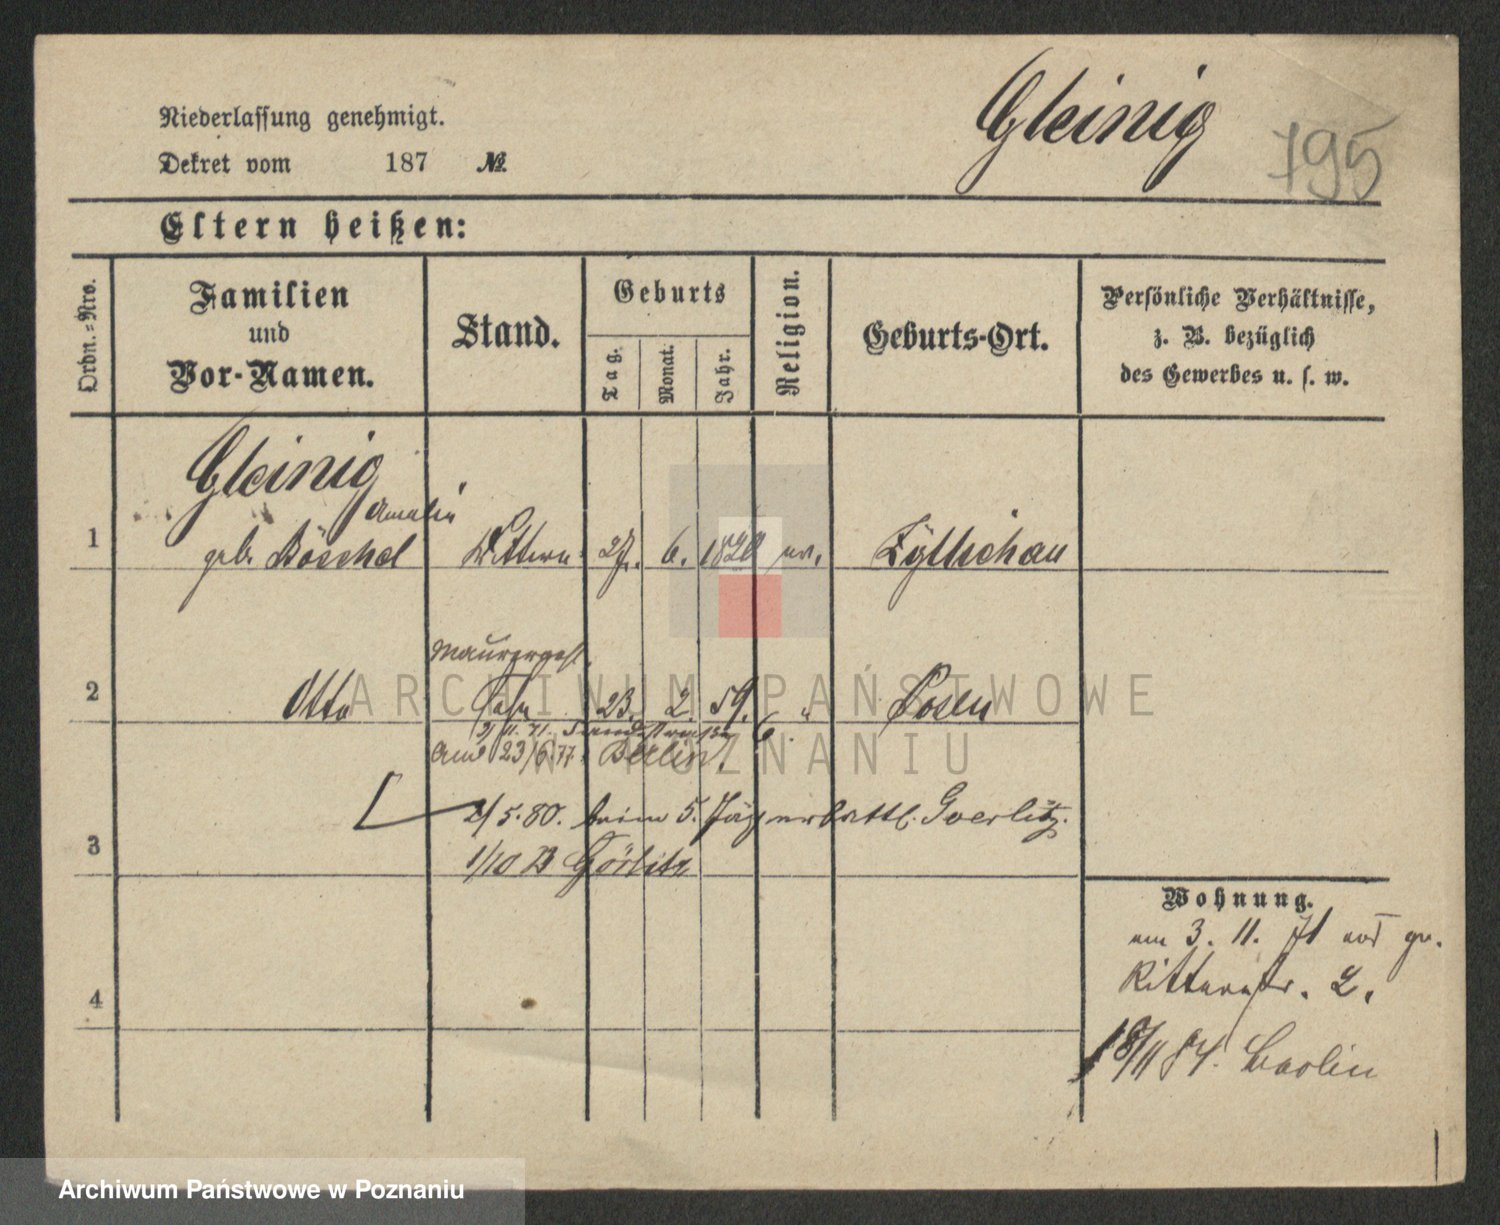 Gleinig
795
Niederlassung genehmigt.
Dekret vom 187 №.
Eltern heißen:
Ordn.-Nro.
Familien
und
Vor-Namen.
Stand.
Geburts
Tag.
Monat.
Jahr.
Religion.
Geburts-Ort.
Persönliche Verhältnisse,
z. B. bezüglich
des Gewerbes u. s. w.
Gleinig
Amalie
1 geb. Röschel 27. 6. 1820 ev. Züllichau
Maurerges.
2 Otto Sohn 23. 2. 59. " Posen
2/11. 71. 6
23/6.77. Berlin.
2/5.80. beim 5. Jägerbattl. Goerlitz.
3 1/10 Görlitz
Wohnung.
am 3. 11. 71 auf gr.
Ritterstr. 2.
4
18/11 84. Berlin
ARCHIWUM PAŃSTWOWE
W POZNANIU
Archiwum Państwowe w Poznaniu